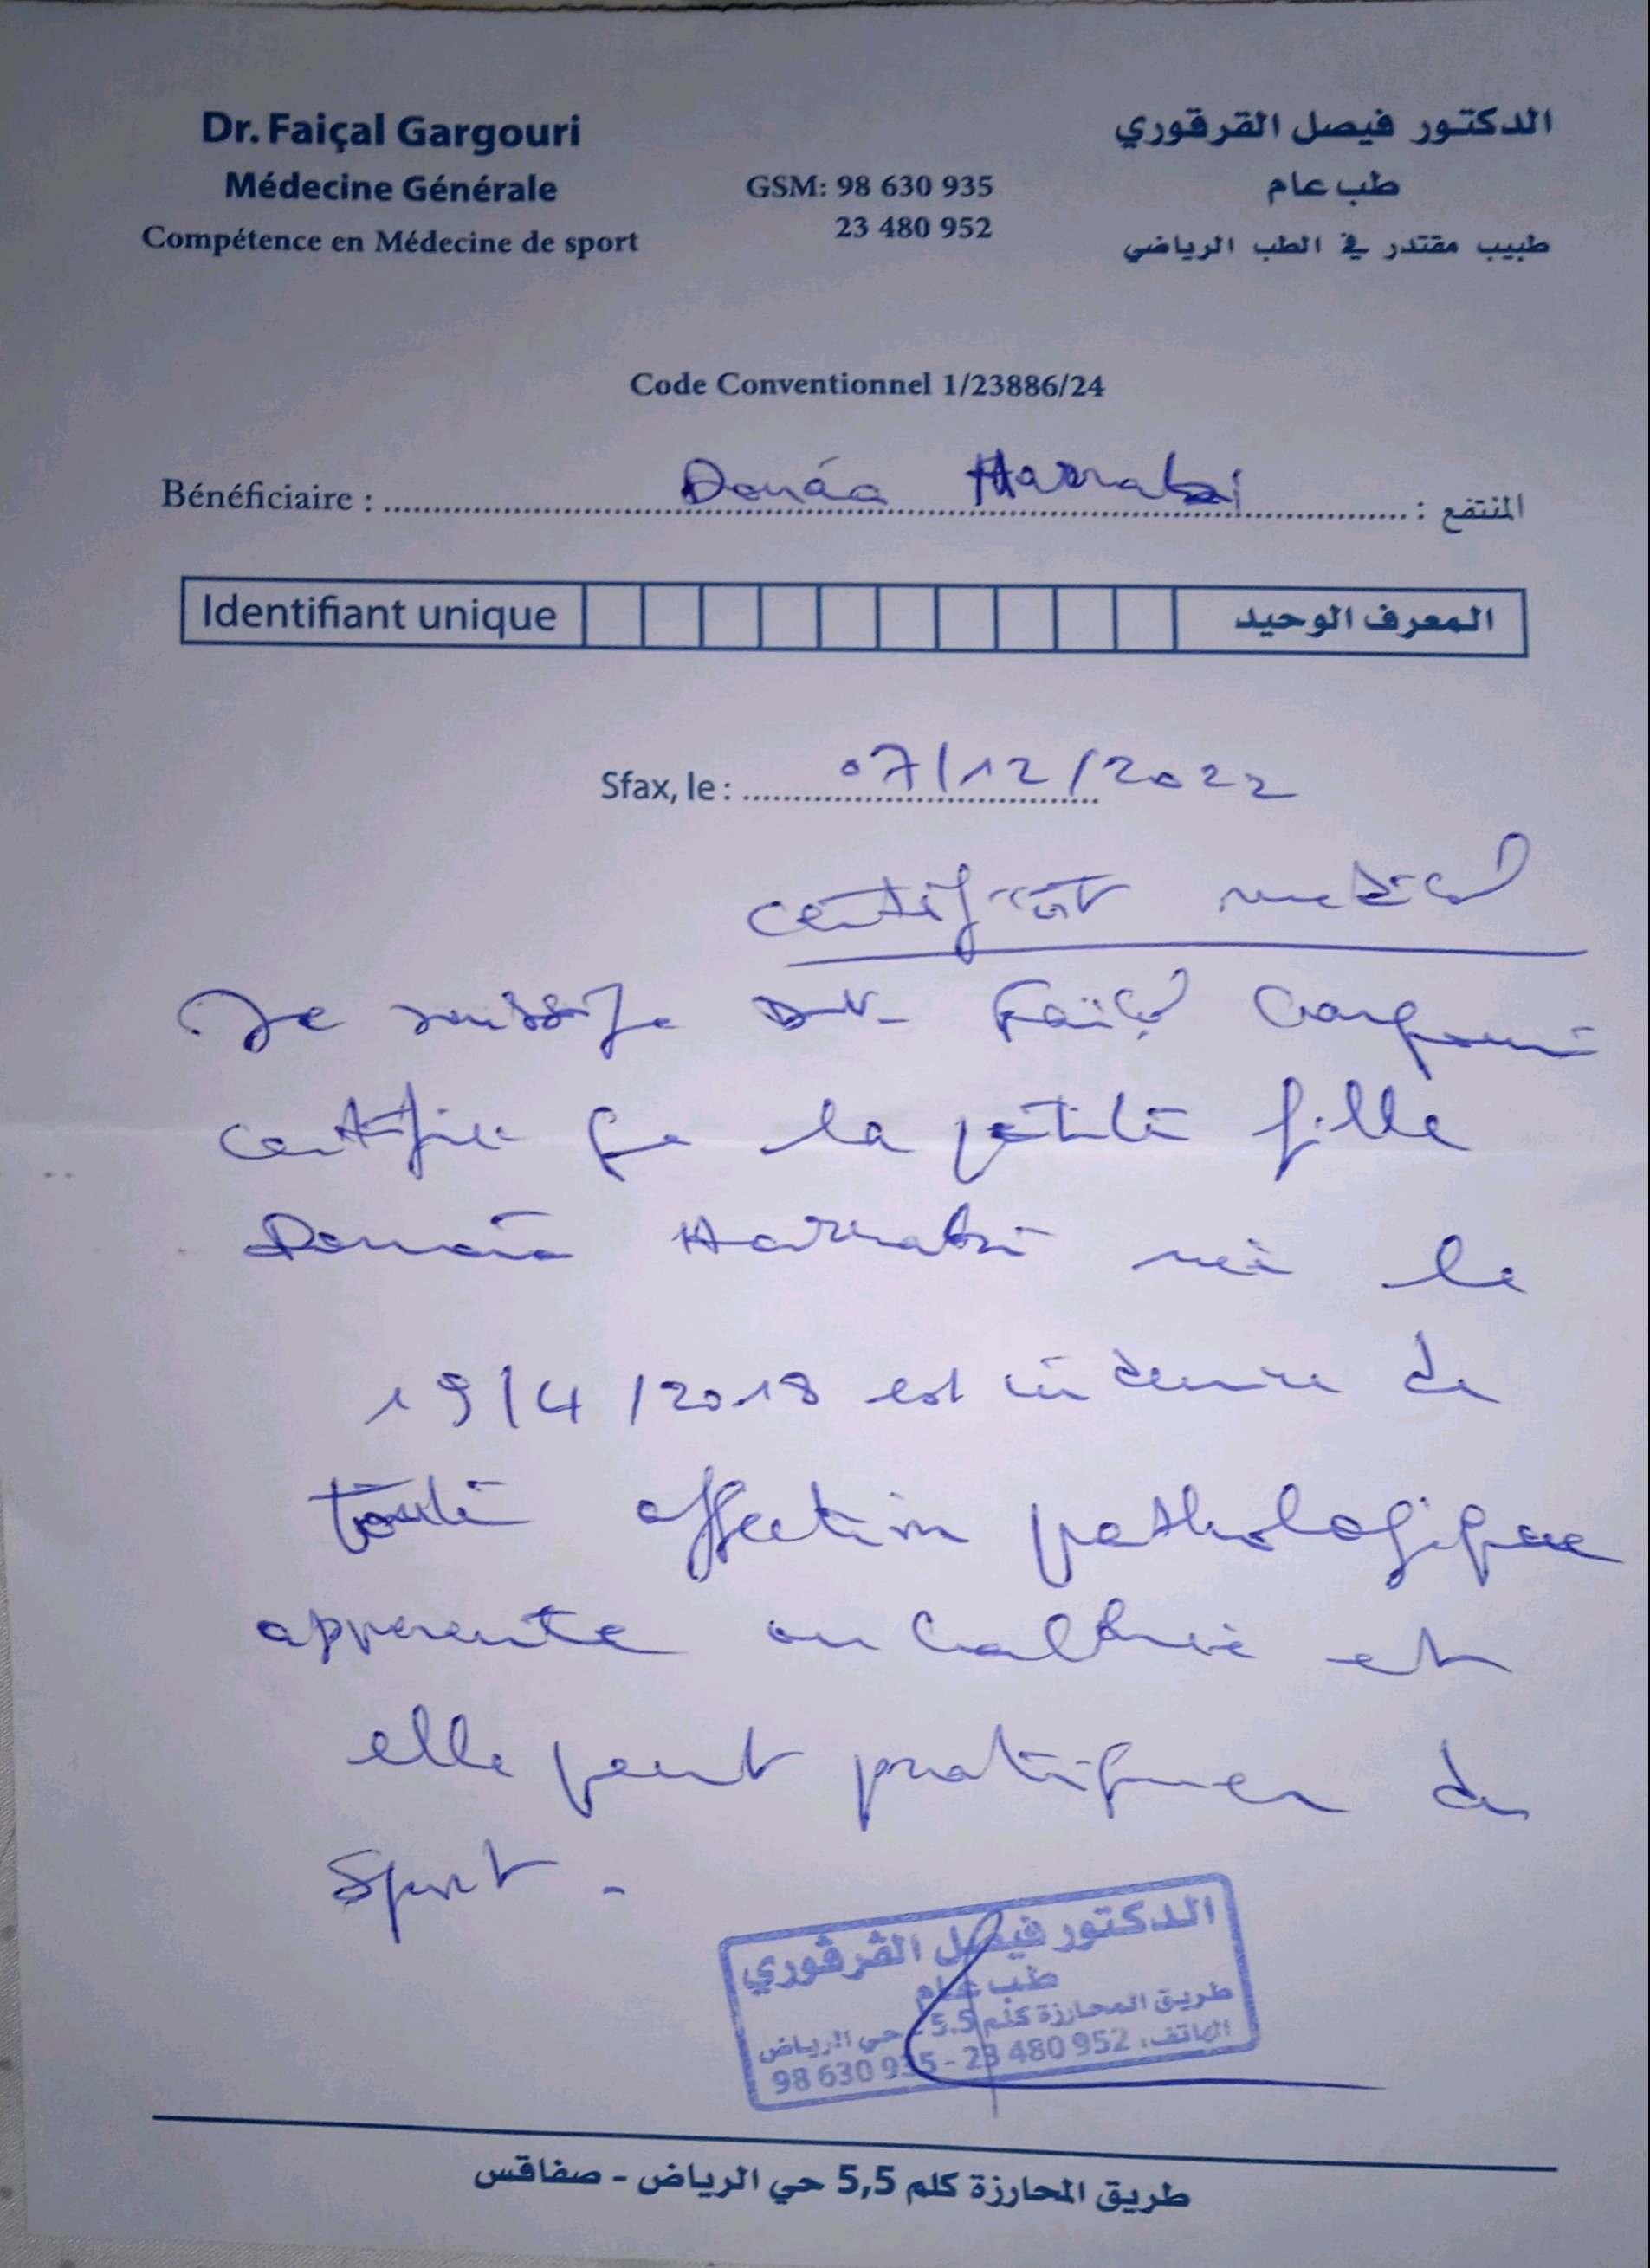 Dr. Faiçal Gargouri
Médecine Générale
Compétence en Médecine de sport
GSM: 98 630 935
23 480 952
الدكتور فيصل القرقوري
طب عام
طبيب مقتدر في الطب الرياضي
Code Conventionnel 1/23886/24
Bénéficiaire : Douáa Harrabi المنتفع :
Identifiant unique المعرف الوحيد
Sfax, le : 07/12/2022
Certificat medical
Je soussigne Dr Faiçal Gargouri
certifie que la petite fille
Douaa Harrabi née le
19/4/2018 est indemne de
toute affection pathologique
apparente et
elle peut pratiquer du
Sport.
الدكتور فيصل الڤرڤوري
طب عام
طريق المحارزة كلم 5.5 - حي الرياض
الهاتف: 98 630 935 - 23 480 952
طريق المحارزة كلم 5,5 حي الرياض - صفاقس